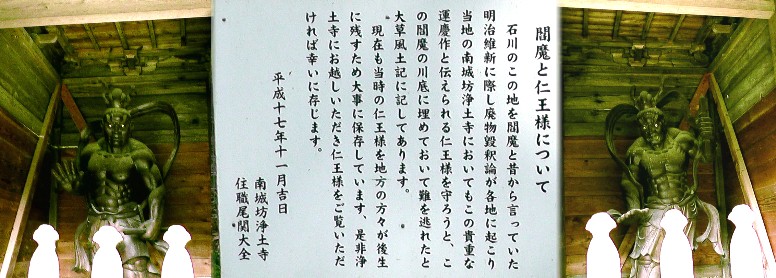 閻魔と仁王様について
石川のこの地を閻魔と昔から言っていた
明治維新に際し廃物毀釈論が各地に起こり
当地の南城坊浄土寺においてもこの貴重な
運慶作と伝えられる仁王様を守ろうと、こ
の閻魔の川底に埋めておいて難を逃れたと
大草風土記に記してあります。
現在も当時の仁王様を地方の方々が後生
に残すため大事に保存しています、是非浄
土寺にお越しいただき仁王様をご覧いただ
ければ幸いに存じます。
平成十七年十一月吉日
南城坊浄土寺
住職尾関大全